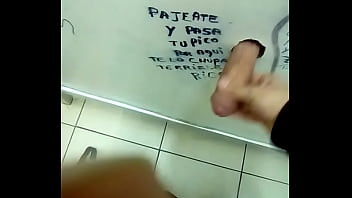 PAJEATE
Y PASA
TU PICO
POR AQUI
TE LO CHUPA
TERRIBLE
RICO